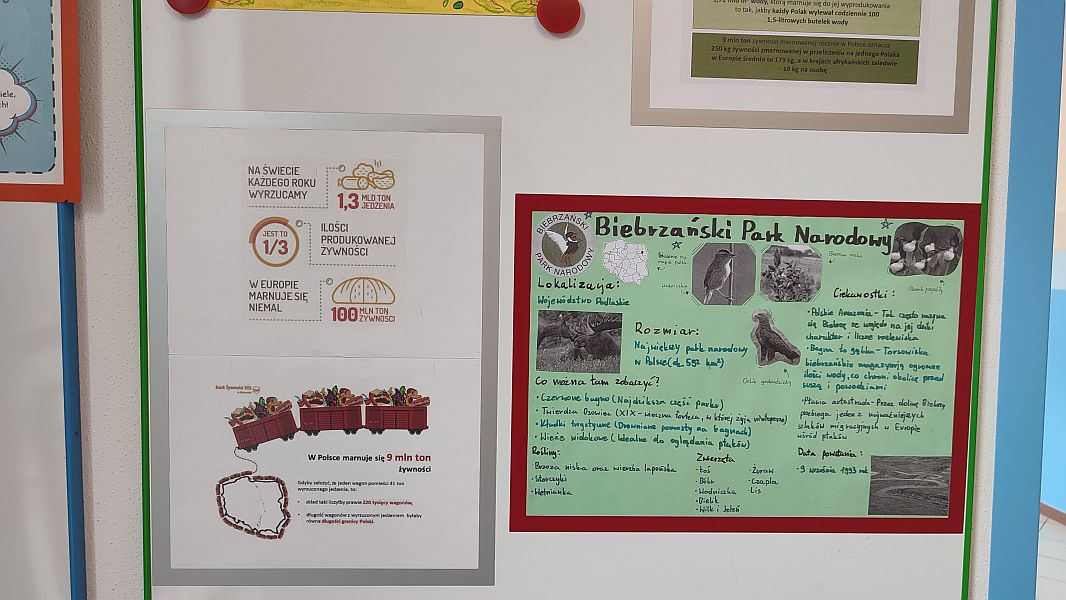 iele,
ch!
wody, którą marnuje się do jej wyprodukowania
to tak, jakby każdy Polak wylewał codziennie 100
1,5-litrowych butelek wody
9 mln ton żywności marnowanej rocznie w Polsce oznacza
250 kg żywności zmarnowanej w przeliczeniu na jednego Polaka
w Europie średnio to 179 kg, a w krajach afrykańskich zaledwie
- 10 kg na osobę
NA ŚWIECIE
KAŻDEGO ROKU
WYRZUCAMY
1,3 MLD TON
JEDZENIA
JEST TO
1/3
ILOŚCI
PRODUKOWANEJ
ŻYWNOŚCI
W EUROPIE
MARNUJE SIĘ
NIEMAL
100 MLN TON
ŻYWNOŚCI
Bank Żywności SOS
W Polsce marnuje się 9 mln ton
żywności
Gdyby założyć, że jeden wagon pomieści 41 ton
wyrzuconego jedzenia, to:
• skład taki liczyłby prawie 220 tysięcy wagonów,
• długość wagonów z wyrzuconym jedzeniem byłaby
równa długości granicy Polski.
BIEBRZAŃSKI
PARK NARODOWY
Biebrzański Park Narodowy
Położenie na
mapie polski
Wodniczka
Brzoza niska
Obuwik pospolity
Orlik grubodzioby
Lokalizacja:
Województwo Podlaskie
Rozmiar:
Największy park narodowy
w Polsce (ok. 592 km²)
Co można tam zobaczyć?
• Czerwone bagno (Najdziksza część parku)
• Twierdza Osowiec (XIX-wieczna forteca, w której żyją nietoperze)
• Kładki turystyczne (Drewniane pomosty na bagnach)
• Wieże widokowe (Idealne do oglądania ptaków)
Rośliny:
Brzoza niska oraz wierzba lapońska
• Storczyki
• Wełnianka
Zwierzęta
• Łoś
• Bóbr
• Wodniczka
• Bielik
• Wilk i Jeleń
• Żuraw
• Czapla
• Lis
Ciekawostki:
• Polskie Amazonia - Tak często nazywa
się Biebrzę ze względu na jej dziki
charakter i liczne rozlewiska
• Bagna to gąbka - Torfowiska
biebrzańskie magazynują ogromne
ilości wody, co chroni okolicę przed
suszą i powodziami
• Ptasia autostrada - Przez dolinę Biebrzy
przebiega jeden z najważniejszych
szlaków migracyjnych w Europie
wśród ptaków
Data powstania:
• 9 września 1993 rok